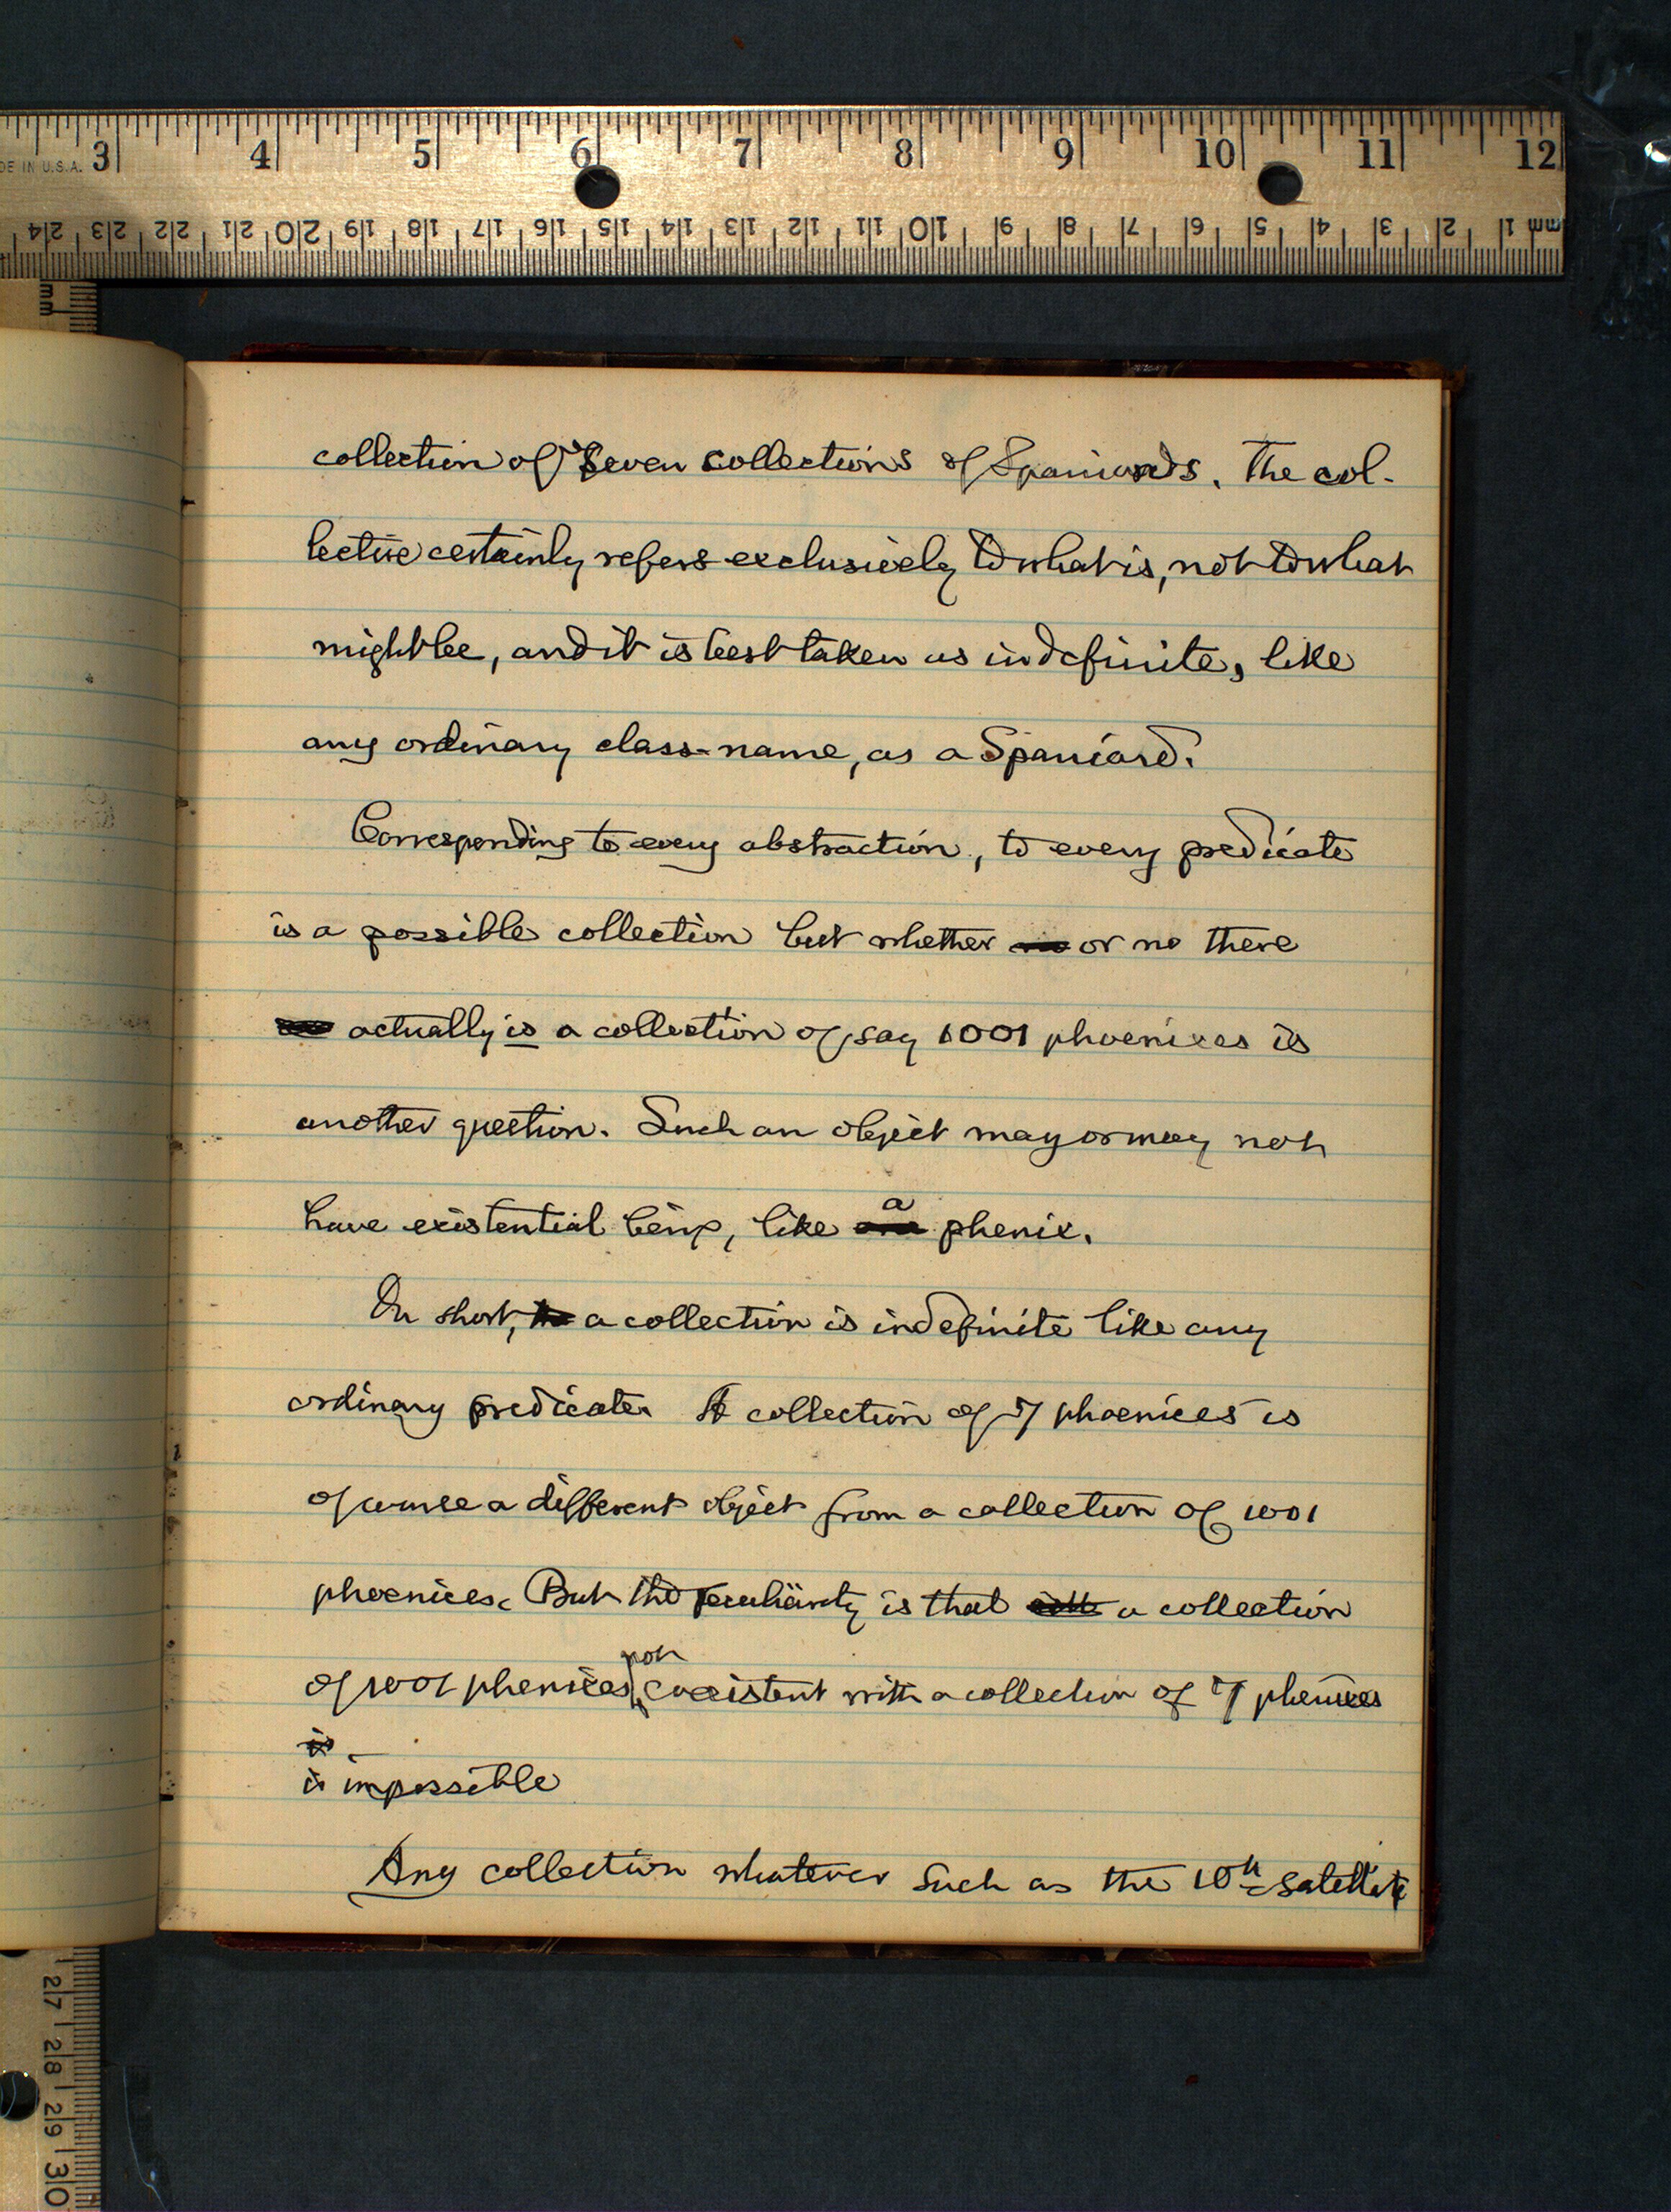 DE IN U.S.A. 3 4 5 6 7 8 9 10 11 12
24 23 22 21 20 19 18 17 16 15 14 13 12 11 10 9 8 7 6 5 4 3 2 1 mm
mm
collection of seven collections of Spaniards. The col-
lective certainly refers exclusively to what is, not to what
might be, and it is best taken as indefinite, like
any ordinary class-name, as a Spaniard.
Corresponding to every abstraction, to every predicate
is a possible collection but whether or no there
actually is a collection of say 1001 phoenixes is
another question. Such an object may or may not
have existential being, like a phenix.
In short, a collection is indefinite like any
ordinary predicate. A collection of 7 phoenices is
of course a different object from a collection of 1001
phoenices. But the peculiarity is that a collection
of 1001 phenices non coexistent with a collection of 7 phenices
is
is impossible
Any collection whatever such as the 10th satellite
27 28 29 30